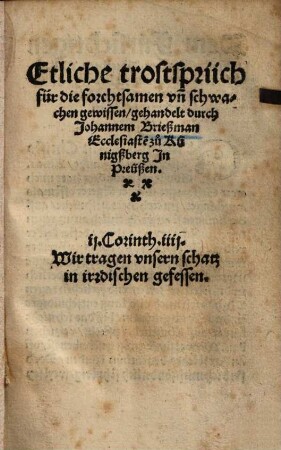 Etliche trostsprüch
für die forchtsamen vñ schwa-
chen gewissen/gehandelt durch
Johannem Brießman
Ecclesiastẽ zů Kü
nigßberg In
Preüßen.
ij. Corinth. iiij.
Wir tragen vnsern schatz
in irrdischen gefessen.